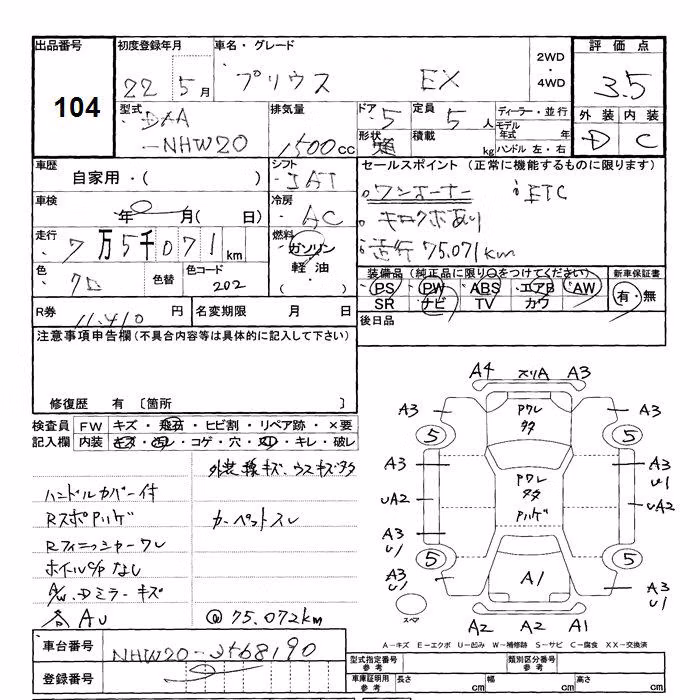 出品番号
104
初度登録年月
22 5月
車名・グレード
プリウス EX
2WD
・
4WD
評価点
3.5
外装 内装
D C
型式
DAA
-NHW20
排気量
1500cc
ドア 5
定員 5人
形状
積載 kg
ディーラー・並行
モデル年式 年
ハンドル 左・右
車歴
自家用・( )
シフト
IAT
セールスポイント (正常に機能するものに限ります)
ワンオーナー ETC
キロクボあり
走行75.071km
車検
年 月( 日)
冷房
AC
走行
7万5千071km
燃料
ガソリン
軽油
( )
色
クロ
色替
色コード
202
装備品 (純正品に限り〇をつけてください)
PS PW ABS エアB AW
SR ナビ TV カワ
新車保証書
有・無
R券
11.410円
名変期限 月 日
後日品
注意事項申告欄 (不具合内容等は具体的に記入して下さい)
修復歴 有 〔箇所 〕
検査員
記入欄
FW キズ・飛石・ヒビ割・リペア跡・×要
内装 キズ・汚レ・コゲ・穴・スレ・キレ・破レ
外装線キズ、ウスキズ多
ハンドルカバー付
RスポPハゲ
カーペットスレ
Rフィニッシャーワレ
ホイルC/Pなし
A/W、Dミラーキズ
各AU
@75.072km
A4 スリA A3
A3 Pワレ A3
5 タタ 5
A3 A3
U1
Pワレ
UA2 タタ UA2
Pハゲ
A3 A3
U1 U1
5 5
A3 A1 A3
U1 U1
スペア
A2 A2 A1
A－キズ E－エクボ U－凹み W－補修跡 S－サビ C－腐食 XX－交換済
車台番号
NHW20-3468190
登録番号
型式指定番号
参考
類別区分番号
参考
車庫証明用
参考
長さ cm 幅 cm 高さ cm